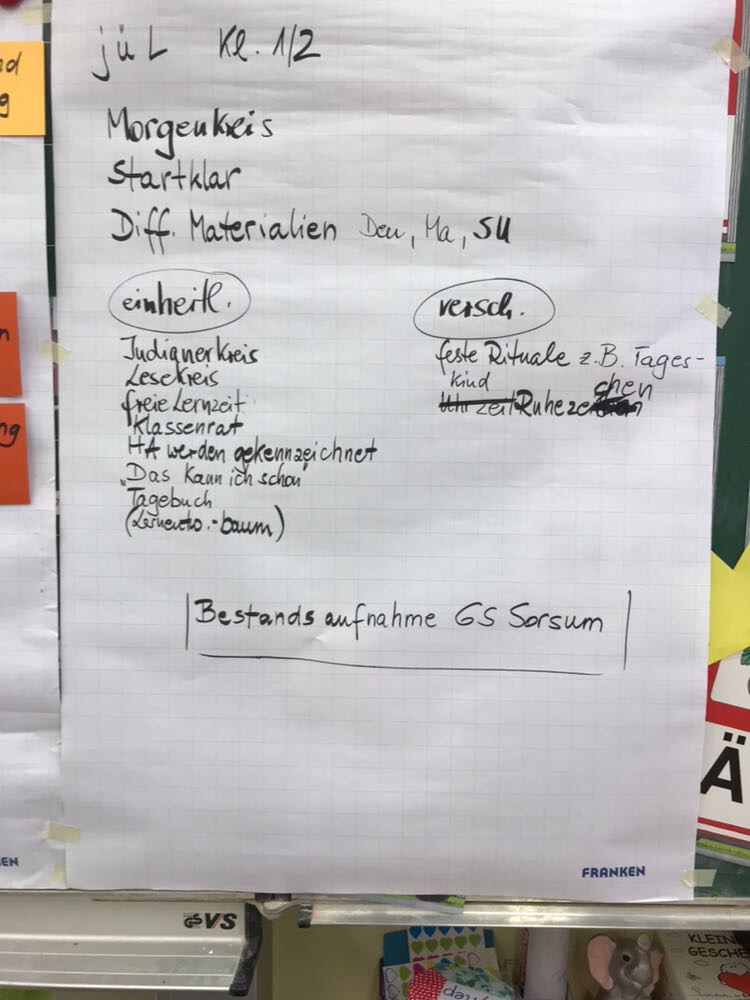 jüL Kl. 1/2
Morgenkreis
Startklar
Diff. Materialien Deu, Ma, SU
einheitl.
Indianerkreis
Lesekreis
freie Lernzeit
Klassenrat
HA werden gekennzeichnet
"Das kann ich schon"
Tagebuch
-baum)
versch.
feste Rituale z.B. Tages-
kind
Uhrzeit Ruhezeichen
Bestandsaufnahme GS Sorsum
FRANKEN
nd
g
n
ng
EN
GS VS
Ä
KLEIN
GESCHE